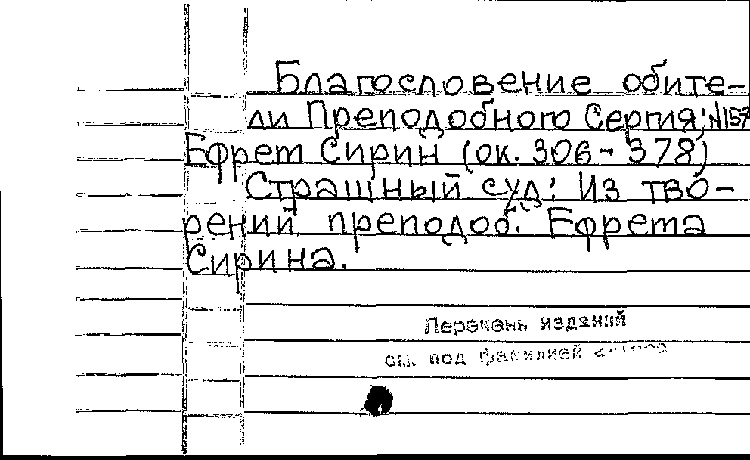 Благословение обите-
ли Преподобного Сергия; №157
Ефрет Сирин (ок. 306 - 378)
Страшный суд: Из тво-
рений преподоб. Ефрета
Сирина.
Перечень изданий
см. под фамилией автора